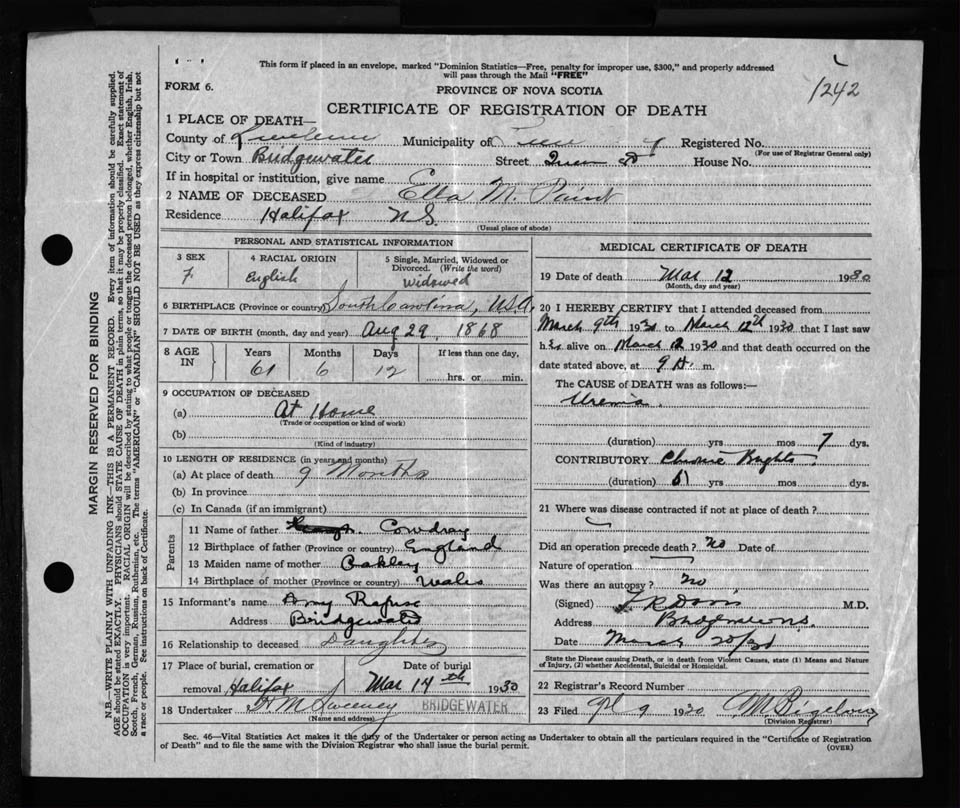 This form if placed in an envelope, marked "Dominion Statistics—Free, penalty for improper use, $300," and properly addressed
will pass through the Mail "FREE"
1242
FORM 6.
PROVINCE OF NOVA SCOTIA
CERTIFICATE OF REGISTRATION OF DEATH
1 PLACE OF DEATH—
County of Municipality of Registered No.
(For use of Registrar General only)
City or Town Bridgewater Street House No.
If in hospital or institution, give name
2 NAME OF DECEASED Ella M. Paint
Residence Halifax N.S.
(Usual place of abode)
PERSONAL AND STATISTICAL INFORMATION
3 SEX 4 RACIAL ORIGIN 5 Single, Married, Widowed or
Divorced. (Write the word)
F English Widowed
6 BIRTHPLACE (Province or country) South Carolina, U.S.A.
7 DATE OF BIRTH (month, day and year) Aug 29, 1868
8 AGE IN Years Months Days If less than one day,
61 6 12 hrs. or min.
9 OCCUPATION OF DECEASED
(a) At Home
(Trade or occupation or kind of work)
(b)
(Kind of industry)
10 LENGTH OF RESIDENCE (in years and months)
(a) At place of death 9 Months
(b) In province
(c) In Canada (if an immigrant)
Parents
11 Name of father Cowdray
12 Birthplace of father (Province or country) England
13 Maiden name of mother Oakley
14 Birthplace of mother (Province or country) Wales
15 Informant's name Amy Rafuse
Address Bridgewater
16 Relationship to deceased Daughter
17 Place of burial, cremation or Date of burial
removal Halifax Mar 14th 1930
18 Undertaker H M Sweeney BRIDGEWATER
(Name and address)
MEDICAL CERTIFICATE OF DEATH
19 Date of death Mar 12 1930
(Month, day and year)
20 I HEREBY CERTIFY that I attended deceased from
March 9th 1930 to March 12th 1930 that I last saw
her alive on March 12 1930 and that death occurred on the
date stated above, at 9 m.
The CAUSE of DEATH was as follows:—
Uremia
(duration) yrs mos 7 dys.
CONTRIBUTORY Chronic Brights
(duration) yrs mos dys.
21 Where was disease contracted if not at place of death?
Did an operation precede death? No Date of
Nature of operation
Was there an autopsy? No
(Signed) M.D.
Address
Date March 20/30
State the Disease causing Death, or in death from Violent Causes, state (1) Means and Nature
of Injury, (2) whether Accidental, Suicidal or Homicidal.
22 Registrar's Record Number
23 Filed 9 1930 Bigelow
(Division Registrar)
Sec. 46—Vital Statistics Act makes it the duty of the Undertaker or person acting as Undertaker to obtain all the particulars required in the "Certificate of Registration
of Death" and to file the same with the Division Registrar who shall issue the burial permit.
(OVER)
MARGIN RESERVED FOR BINDING
N.B.—WRITE PLAINLY WITH UNFADING INK—THIS IS A PERMANENT RECORD. Every item of information should be carefully supplied.
AGE should be stated EXACTLY. PHYSICIANS should STATE CAUSE OF DEATH in plain terms, so that it may be properly classified. Exact statement of
OCCUPATION is very important. RACIAL ORIGIN will be described by stating to what people or tongue the deceased person belonged, whether English, Irish,
Scotch, French, German, Russian, Ruthenian, etc. The terms "AMERICAN" or "CANADIAN" SHOULD NOT BE USED as they express citizenship but not
a race or people. See instructions on back of Certificate.